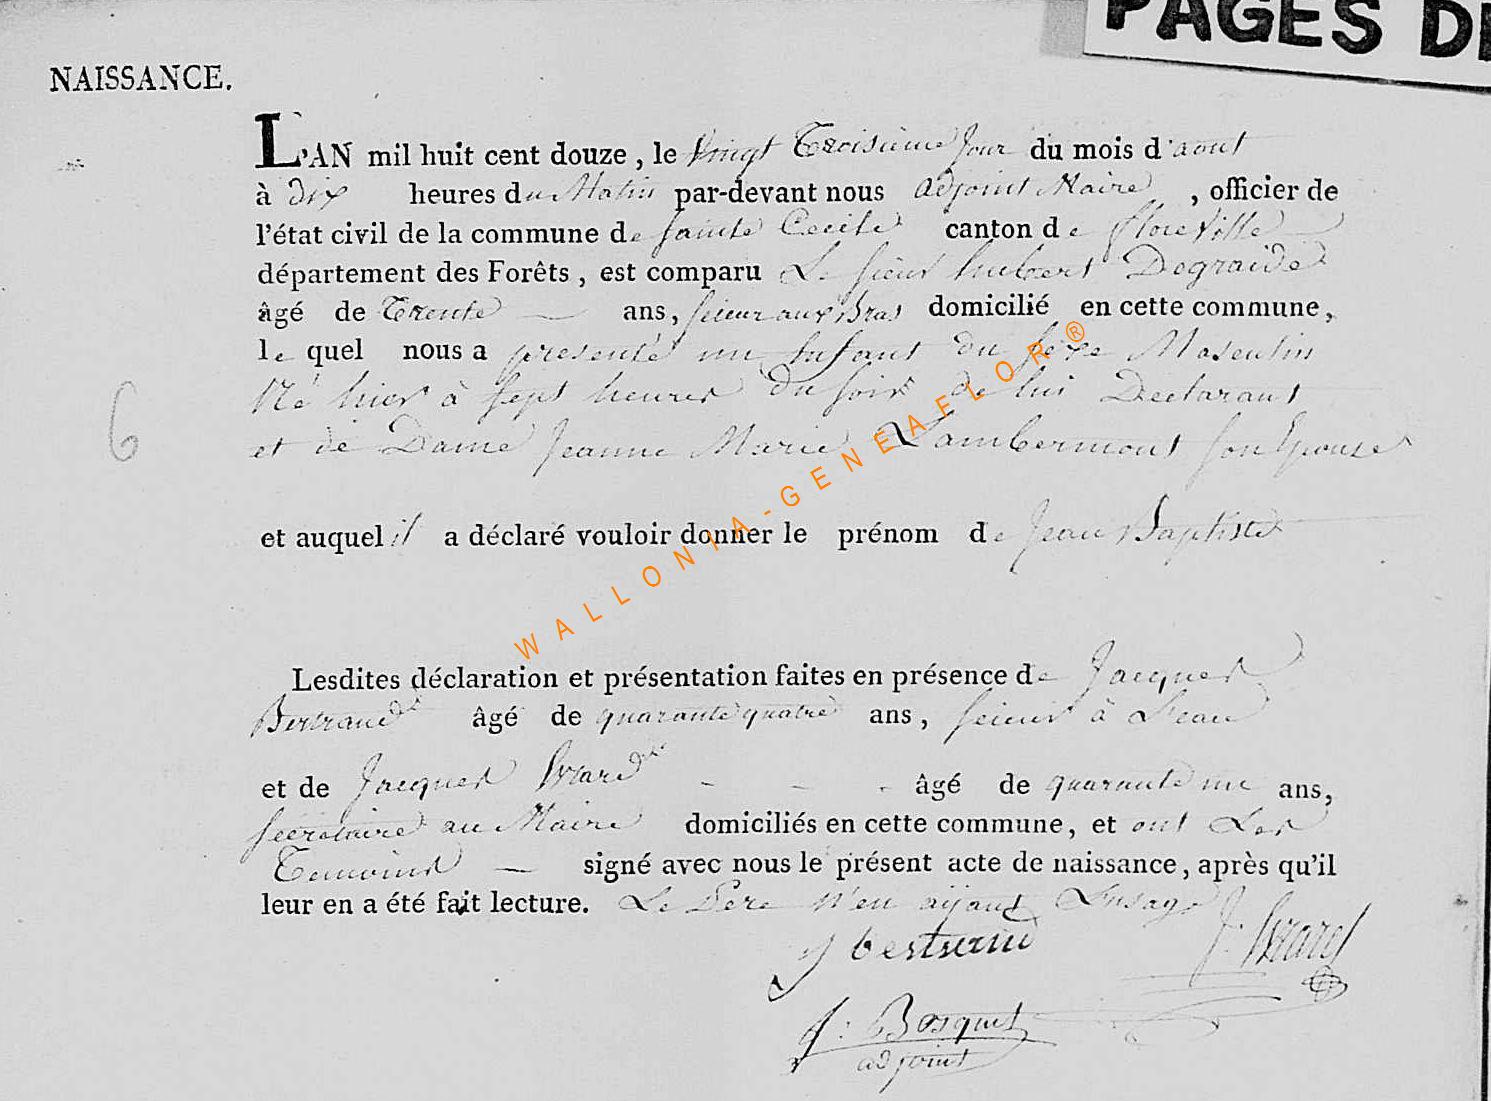 PAGES DE
NAISSANCE.
L'AN mil huit cent douze, le vingt Troisieme Jour du mois d'aout
à dix heures du Matin par-devant nous adjoint Maire, officier de
l'état civil de la commune de Sainte Cecile canton de floreville
département des Forêts, est comparu Le sieur hubert Degraide
âgé de Trente — ans, scieur aux Bras domicilié en cette commune,
le quel nous a presenté un Enfant du sexe Masculin
Né hier à sept heures du soir de lui Declarant
et de Dame Jeanne Marie Lambermont son Epouse
6
et auquel il a déclaré vouloir donner le prénom de Jean Baptiste
Lesdites déclaration et présentation faites en présence de Jacques
Bertrand âgé de quarante quatre ans, scieur à L'eau
et de Jacques - - - âgé de quarante un ans,
secretaire au Maire domiciliés en cette commune, et ont Les
Temoins — signé avec nous le présent acte de naissance, après qu'il
leur en a été fait lecture. Le Pere n'en aijant L'usage
J bertrand
J:
J: Bosquet
adjoint
WALLONIA-GENEAFLOR®